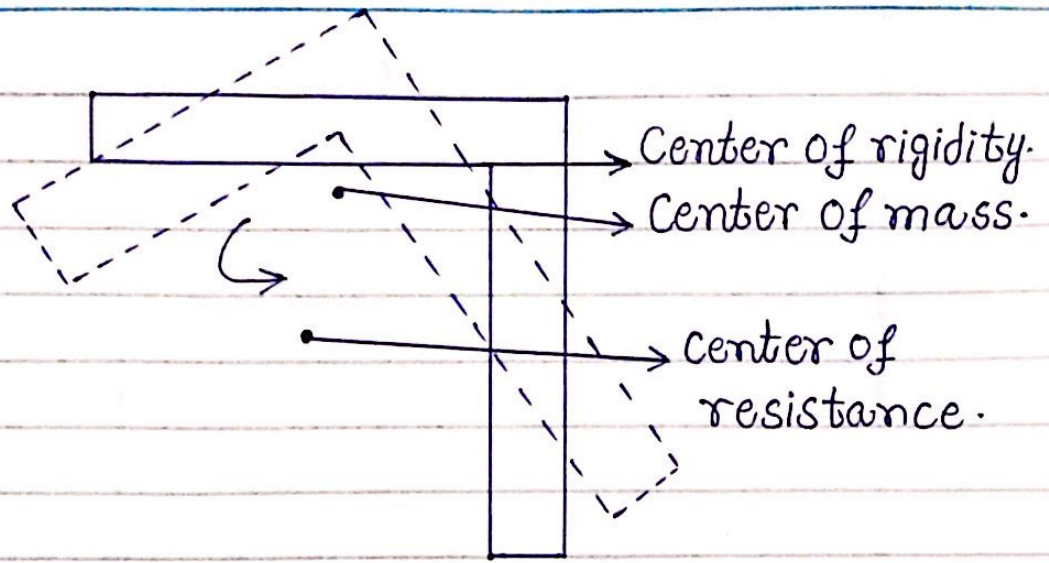 Center of rigidity.
Center of mass.
center of
resistance.